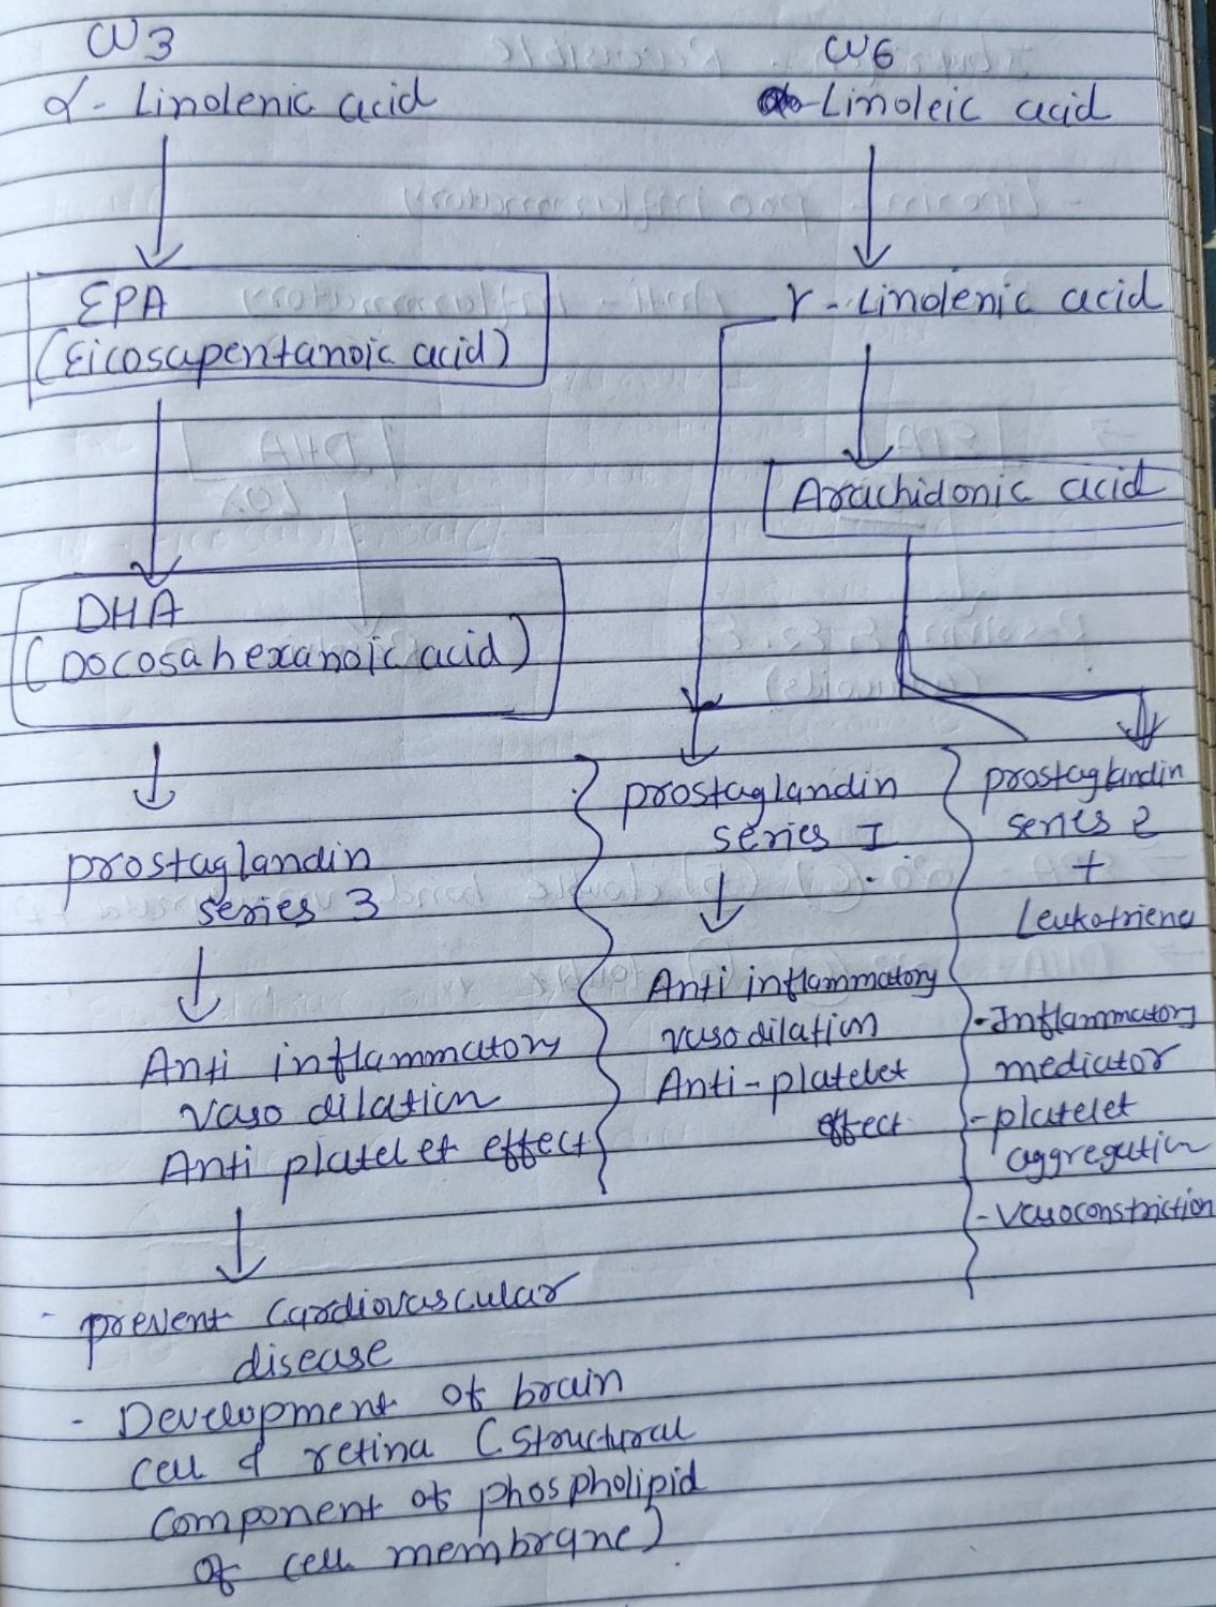 ω3
α- Linolenic acid
EPA
(Eicosapentanoic acid)
DHA
(Docosahexanoic acid)
prostaglandin
series 3
Anti inflammatory
vaso dilation
Anti platelet effect
- prevent Cardiovascular
disease
- Development of brain
cell & retina (Structural
component of phospholipid
of cell membrane)
ω6
-Linoleic acid
γ-Linolenic acid
Arachidonic acid
prostaglandin
series I
Anti inflammatory
vasodilation
Anti-platelet
effect
prostaglandin
series 2
+
Leukotriene
-Inflammatory
mediator
-platelet
aggregation
-Vasoconstriction